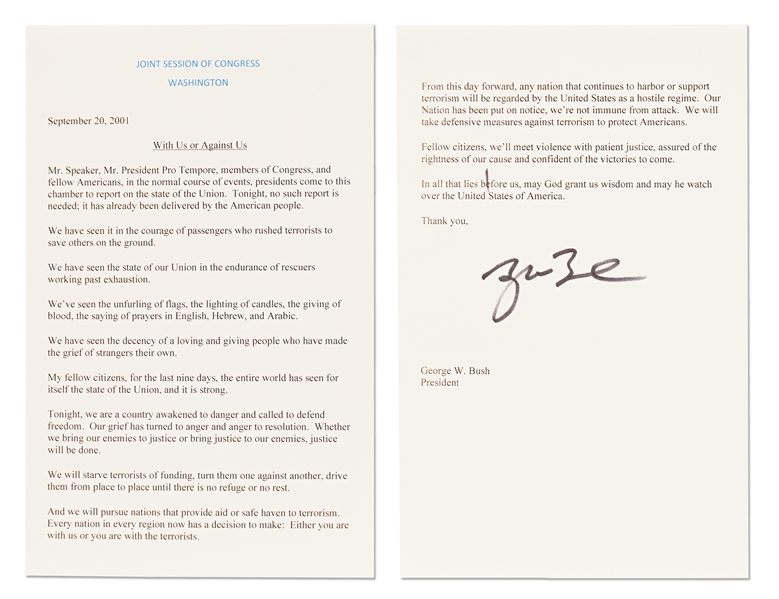 JOINT SESSION OF CONGRESS
WASHINGTON
September 20, 2001
With Us or Against Us
Mr. Speaker, Mr. President Pro Tempore, members of Congress, and
fellow Americans, in the normal course of events, presidents come to this
chamber to report on the state of the Union.  Tonight, no such report is
needed; it has already been delivered by the American people.
We have seen it in the courage of passengers who rushed terrorists to
save others on the ground.
We have seen the state of our Union in the endurance of rescuers
working past exhaustion.
We've seen the unfurling of flags, the lighting of candles, the giving of
blood, the saying of prayers in English, Hebrew, and Arabic.
We have seen the decency of a loving and giving people who have made
the grief of strangers their own.
My fellow citizens, for the last nine days, the entire world has seen for
itself the state of the Union, and it is strong.
Tonight, we are a country awakened to danger and called to defend
freedom.  Our grief has turned to anger and anger to resolution.  Whether
we bring our enemies to justice or bring justice to our enemies, justice
will be done.
We will starve terrorists of funding, turn them one against another, drive
them from place to place until there is no refuge or no rest.
And we will pursue nations that provide aid or safe haven to terrorism.
Every nation in every region now has a decision to make:  Either you are
with us or you are with the terrorists.
From this day forward, any nation that continues to harbor or support
terrorism will be regarded by the United States as a hostile regime.  Our
Nation has been put on notice, we're not immune from attack.  We will
take defensive measures against terrorism to protect Americans.
Fellow citizens, we'll meet violence with patient justice, assured of the
rightness of our cause and confident of the victories to come.
In all that lies before us, may God grant us wisdom and may he watch
over the United States of America.
Thank you,
George W. Bush
President